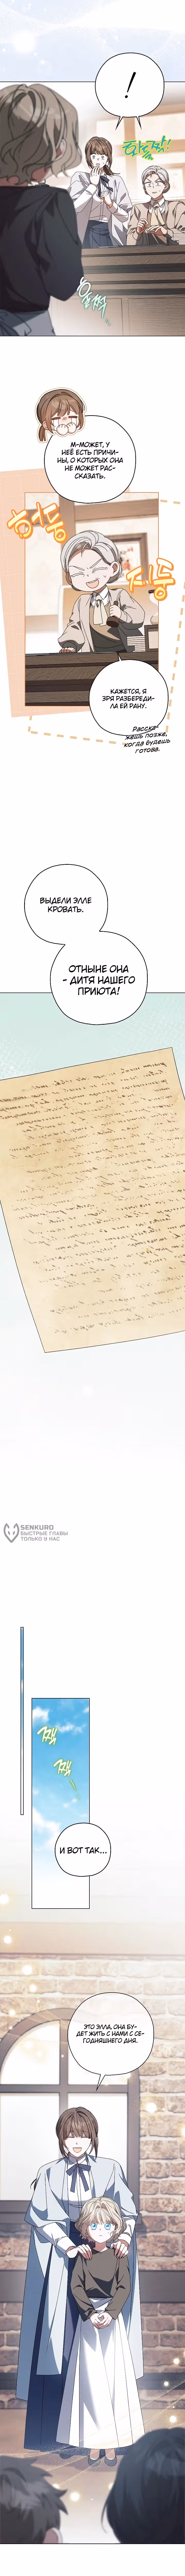 !
화들짝!
움찔
М-МОЖЕТ, У
НЕЁ ЕСТЬ ПРИЧИ-
НЫ, О КОТОРЫХ ОНА
НЕ МОЖЕТ РАС-
СКАЗАТЬ.
허둥
지둥
КАЖЕТСЯ, Я
ЗРЯ РАЗБЕРЕДИ-
ЛА ЕЙ РАНУ.
Расска-
жешь позже,
когда будешь
готова.
ВЫДЕЛИ ЭЛЛЕ
КРОВАТЬ.
ОТНЫНЕ ОНА
- ДИТЯ НАШЕГО
ПРИЮТА!
SENKURO
БЫСТРЫЕ ГЛАВЫ
ТОЛЬКО У НАС
짹
짹
И ВОТ ТАК...
ЭТО ЭЛЛА, ОНА БУ-
ДЕТ ЖИТЬ С НАМИ С СЕ-
ГОДНЯШНЕГО ДНЯ.